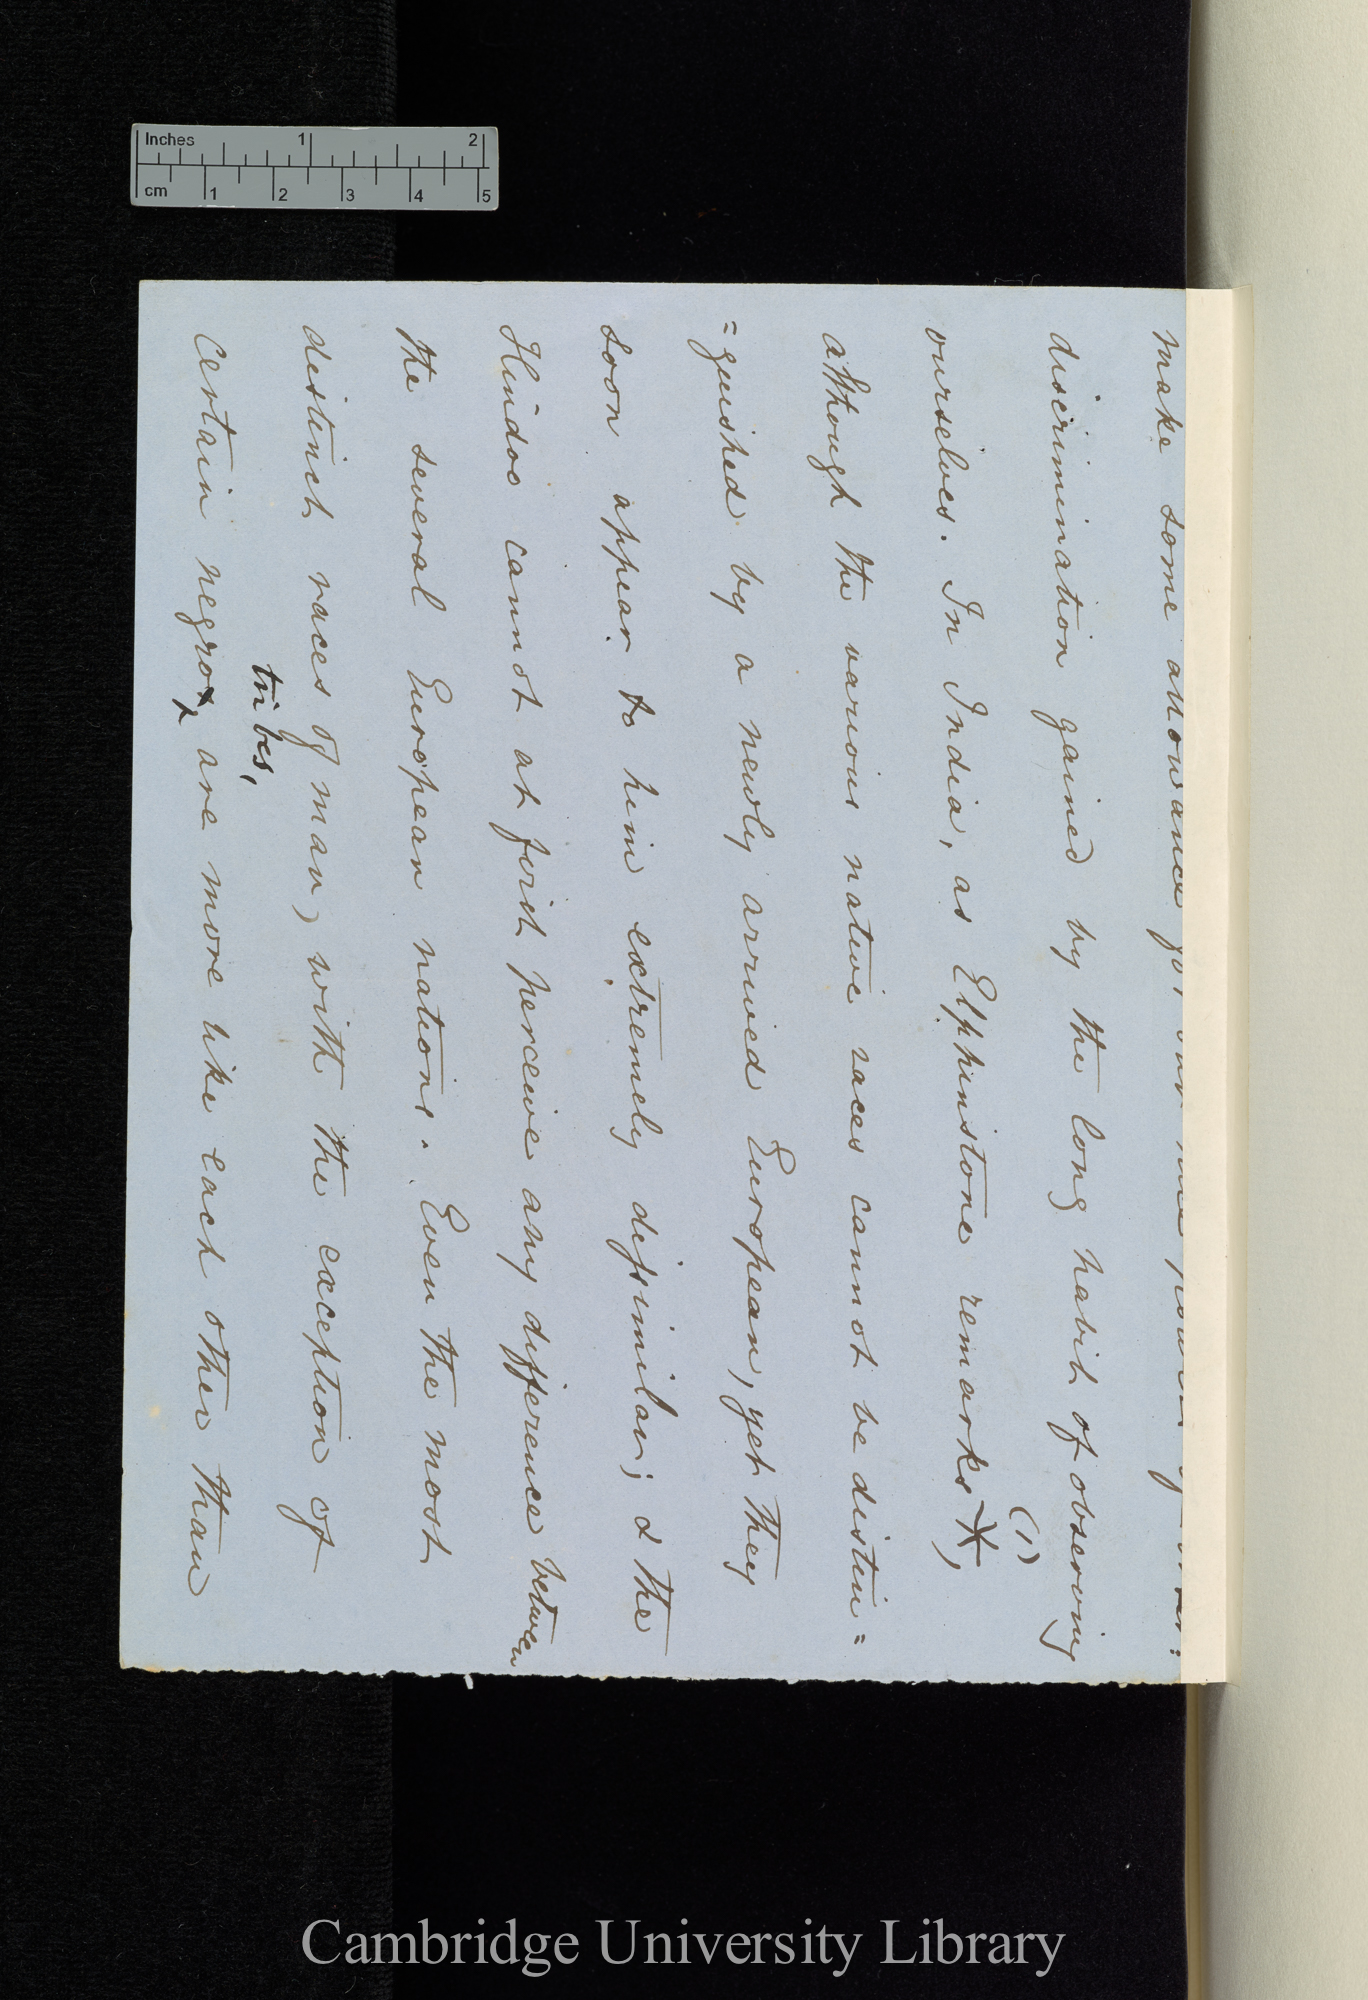 Inches 1 2
cm 1 2 3 4 5
make some allowance for our
discrimination gained by the long habit of observing
(1)
ourselves. In India, as Elphinstone remarks *,
although the various native races cannot be distin=
=guished by a newly arrived European, yet they
soon appear to him extremely dissimilar; & the
Hindoo cannot at first perceive any difference between
the several European nations. Even the most
distinct races of man, with the exception of
tribes,
certain negro are more like each other than
Cambridge University Library